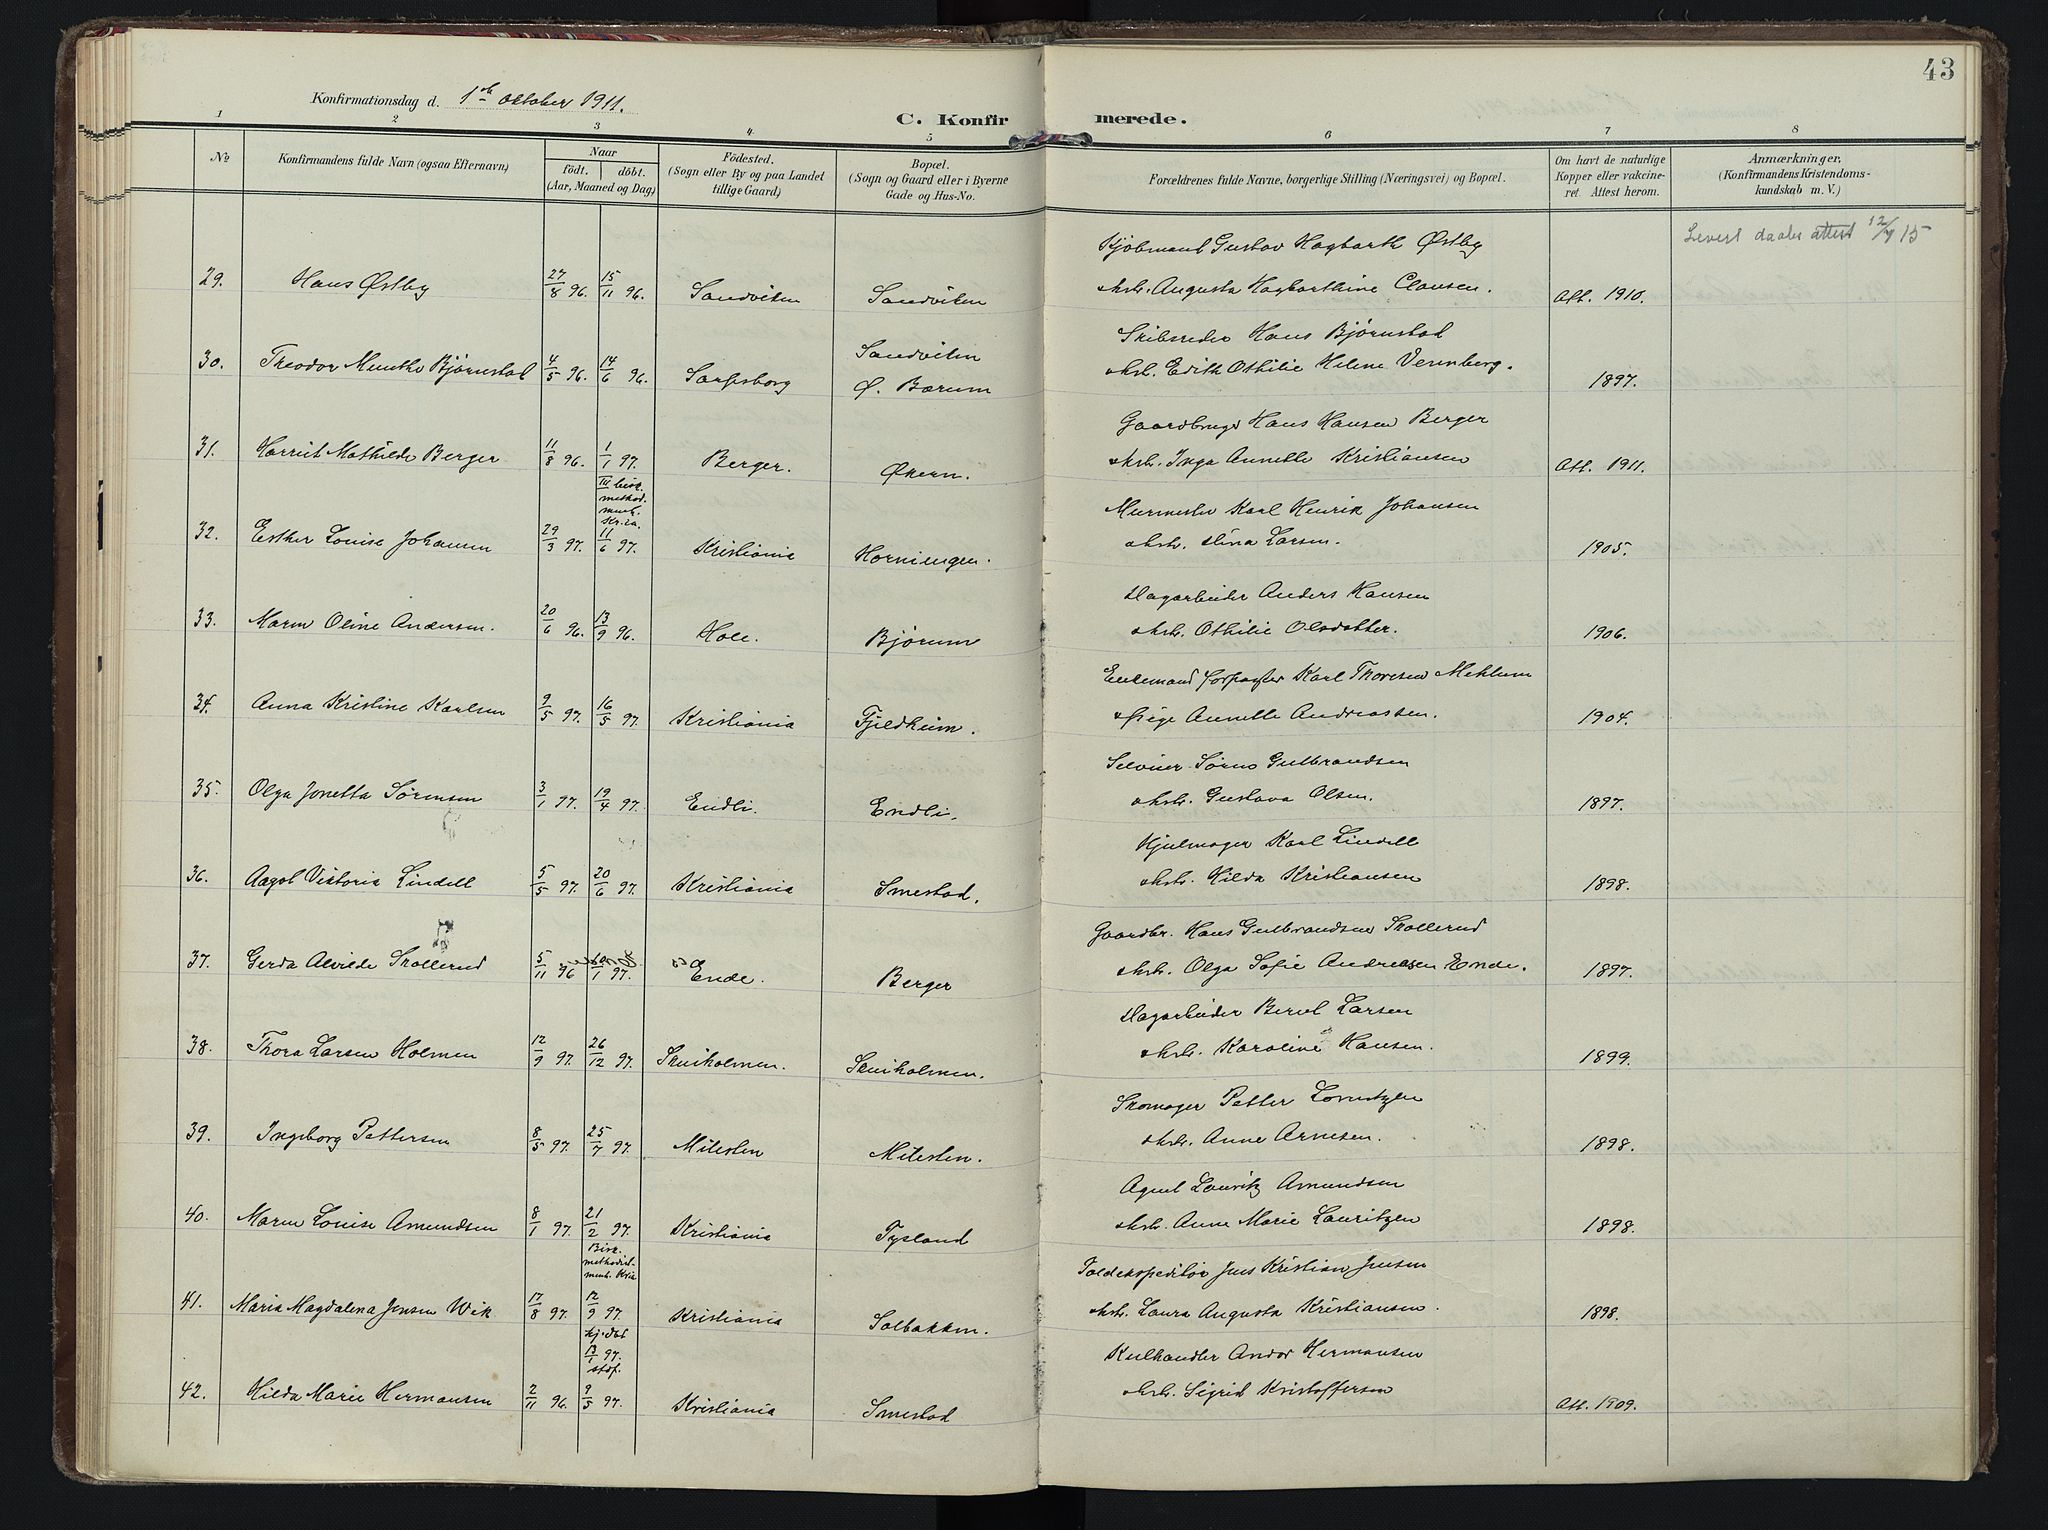 43
Konfirmationsdag d. 1ste oktober 1911.
C. Konfirmerede.
1 2 3 4. 5 6 7 8
No
Konfirmandens fulde Navn (ogsaa Efternavn)
Naar
födt. döbt.
(Aar, Maaned og Dag)
Födested.
(Sogn eller By og paa Landet
tillige Gaard)
Bopæl.
(Sogn og Gaard eller i Byerne
Gade og Hus-No.
Forældrenes fulde Navne, borgerlige Stilling (Næringsvei) og Bopæl.
Om havt de naturlige
Kopper eller vakcine-
ret. Attest herom.
Anmærkninger.
(Konfirmandens Kristendoms-
kundskab m. V.)
Kjöbmand Gustav Hagbarth Østby
Levert daabs attest 12/4 15
29. Hans Østby 27/8 96. 15/11 96. Sandviken Sandviken
Augusta Hagbarthine Clausen. Att. 1910.
Skibsreder Hans Bjørnstad
30. Theodor Munthe Bjørnstad 4/5 96. 14/6 96. Sarpsborg Sandviken
Ø. Bærum
Edith Othilie Helene Verenberg. 1897.
Gaardbruger Hans Hansen Berger
31. Harriet Mathilde Berger 11/8 96. 1/1 97. Berger. Økern.
Inga Annette Kristiansen Att. 1911.
Murmester Karl Henrik Johansen
32. Esther Louise Johansen 29/3 97. 11/6 97. Kristiania Horniengen.
Lina Larsen. 1905.
Dagarbeider Anders Hansen
33. Maren Oline Andersen. 20/6 96. 13/9 96. Hole. Bjørum
Othilie Olsdatter. 1906.
Enkemand forpagter Karl Thoresen Mehlum
34. Anna Kristine Karlsen 9/5 97. 16/5 97. Kristiania Fjeldheim.
Pige Annette Andreassen. 1904.
Selveier Sørens Gulbrandsen
35. Olga Jonetta Sørensen 3/1 97. 19/4 97. Endli. Endli.
Gustava Olsen. 1897.
Hjulmager Karl Lindell
36. Aagot Viktoria Lindell 5/5 97. 20/6 97. Kristiania Smestad.
Hilda Kristiansen 1898.
Gaardbr. Hans Gulbrandsen Skollerud
37. Gerda Alvilde Skollerud 5/11 96 /1 97. Ende. Berger
Olga Sofie Andreasen Ende. 1897.
Dagarbeider Bernt Larsen
38. Thora Larsen Holmen 12/9 97. 26/12 97. Skuiholmen. Skuiholmen.
Karoline Hansen. 1899.
Skomager Petter Lorentzen
39. Ingeborg Pettersen 8/5 97. 25/7 97. Milesten Milesten.
Anne Arnesen. 1898.
Agent Lauritz Amundsen
40. Maren Louise Amundsen 8/1 97. 21/2 97. Kristiania Tysland
Anne Marie Lauritzen 1898.
Toldekspeditør Jens Kristian Jensen
41. Maria Magdalena Jensen Wik 17/8 97. 12/9 97. Kristiania Solbakken.
Laura Augusta Kristiansen. 1898.
Kulhandler Andor Hermansen
42. Hilda Marie Hermansen 2/11 96. 9/5 97. Kristiania Smestad
Sigrid Kristoffersen Att. 1909.